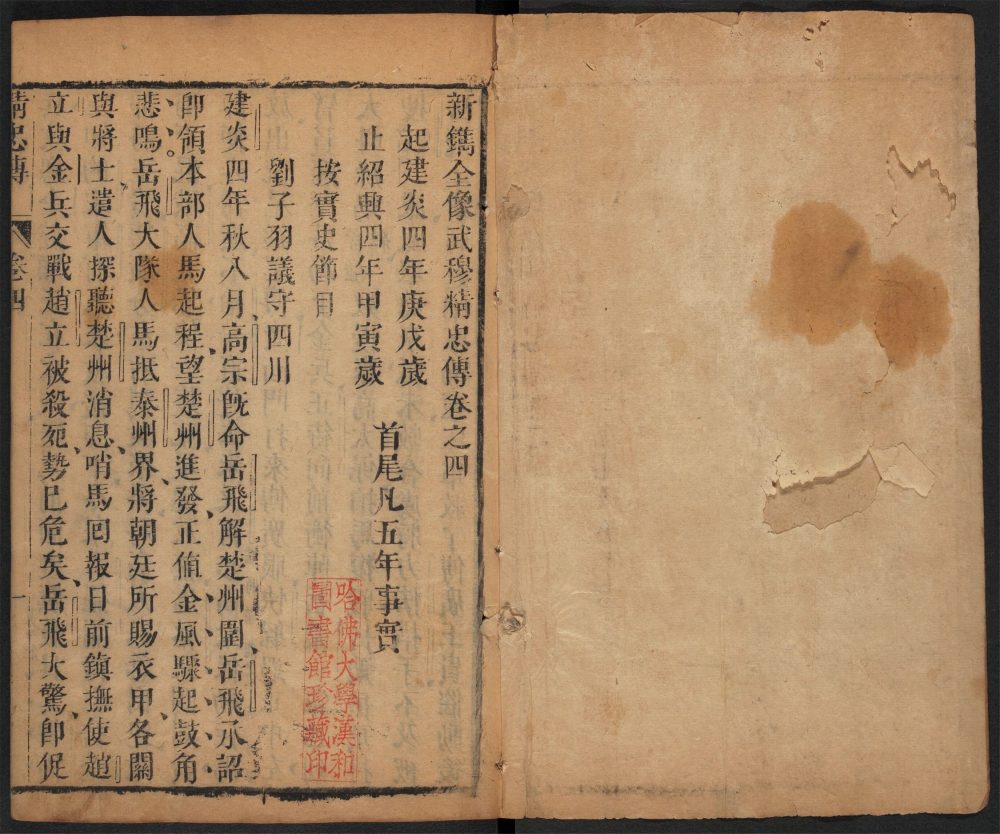 新鐫全像武穆精忠傳卷之四
起建炎四年庚戌歲
止紹興四年甲寅歲
首尾凡五年事實
按實史節目
劉子羽議守四川
建炎四年秋八月高宗旣命岳飛解楚州圍岳飛承詔
卽領本部人馬起程望楚州進發正值金風驟起鼓角
悲鳴岳飛大隊人馬抵泰州界將朝廷所賜衣甲各關
與將士遣人探聽楚州消息哨馬回報日前鎮撫使趙
立與金兵交戰趙立被殺死勢已危矣岳飛大驚卽促
精忠傳
卷四
一
哈佛大學漢和
圖書館珍藏印